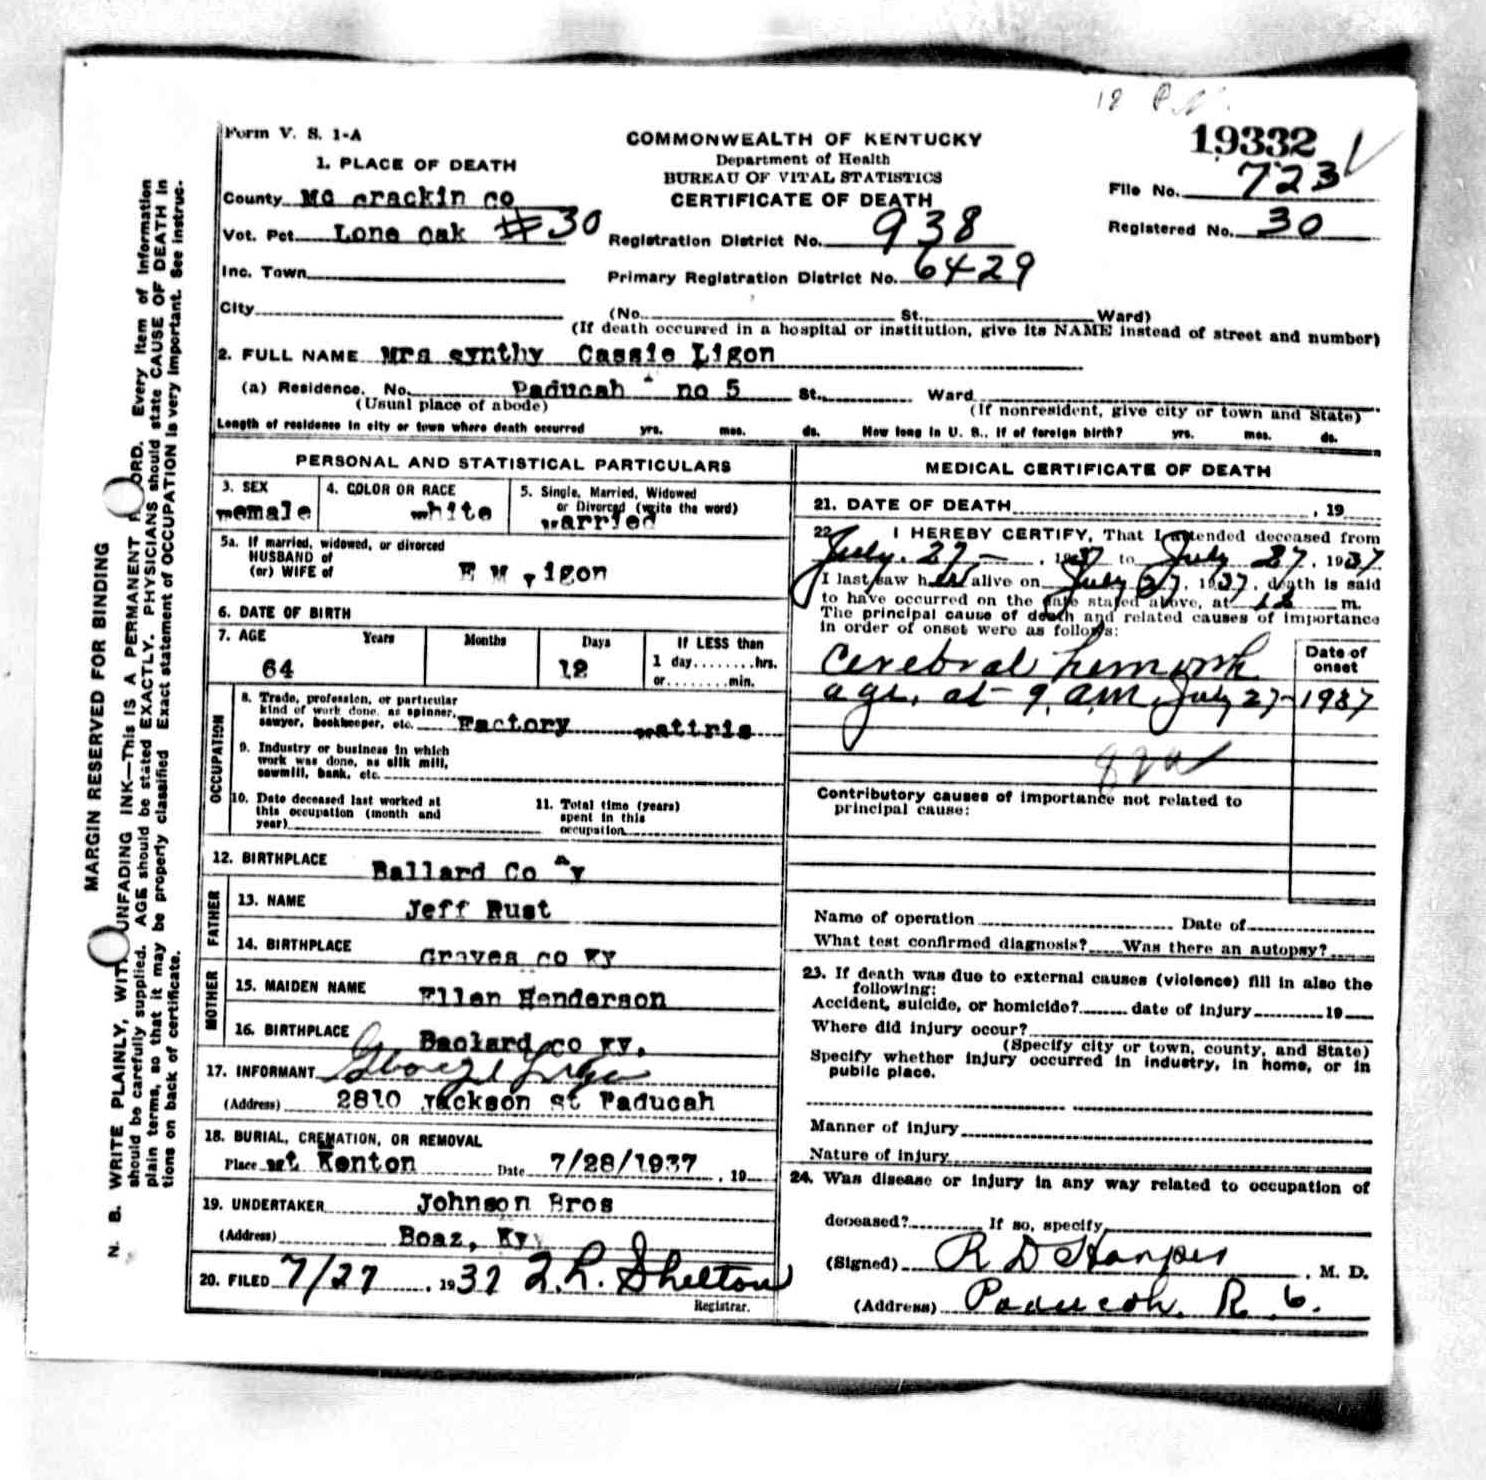 19332
Form V. S. 1-A
COMMONWEALTH OF KENTUCKY
Department of Health
BUREAU OF VITAL STATISTICS
CERTIFICATE OF DEATH
File No. 723
Registered No. 30
1. PLACE OF DEATH
County Mc crackin co
Vot. Pct. Lone oak #30
Registration District No. 938
Inc. Town
Primary Registration District No. 6429
City
(No. St., Ward)
(If death occurred in a hospital or institution, give its NAME instead of street and number)
2. FULL NAME Mrs synthy Cassie Ligon
(a) Residence. No. Paducah no 5 St., Ward
(Usual place of abode)
(If nonresident, give city or town and State)
Length of residence in city or town where death occurred yrs. mos. ds. How long in U. S., if of foreign birth? yrs. mos. ds.
PERSONAL AND STATISTICAL PARTICULARS
3. SEX
emale
4. COLOR OR RACE
white
5. Single, Married, Widowed
or Divorced (write the word)
arried
5a. If married, widowed, or divorced
HUSBAND of
(or) WIFE of
E M igon
6. DATE OF BIRTH
7. AGE Years Months Days If LESS than
64 12 1 day........hrs.
or........min.
OCCUPATION
8. Trade, profession, or particular
kind of work done, as spinner,
sawyer, bookkeeper, etc. Factory mattris
9. Industry or business in which
work was done, as silk mill,
sawmill, bank, etc.
10. Date deceased last worked at
this occupation (month and
year)
11. Total time (years)
spent in this
occupation
12. BIRTHPLACE Ballard Co Ky
FATHER
13. NAME Jeff Rust
14. BIRTHPLACE Graves co Ky
MOTHER
15. MAIDEN NAME Ellen Henderson
16. BIRTHPLACE Baolard co Ky.
17. INFORMANT
(Address) 2810 Jackson st Paducah
18. BURIAL, CREMATION, OR REMOVAL
Place mt Kenton Date 7/28/1937 , 19
19. UNDERTAKER Johnson Bros
(Address) Boaz, Ky
20. FILED 7/27 , 1937 L. Shelton
Registrar.
MEDICAL CERTIFICATE OF DEATH
21. DATE OF DEATH , 19
22. I HEREBY CERTIFY, That I attended deceased from
July. 27 - , 1937 to July 27, 1937
I last saw her alive on July 27, 1937, death is said
to have occurred on the date stated above, at 12 m.
The principal cause of death and related causes of importance
in order of onset were as follows:
Date of
onset
Cerebral hemorrh
age, at 9 a.m, July 27 - 1937
Contributory causes of importance not related to
principal cause:
Name of operation Date of
What test confirmed diagnosis? Was there an autopsy?
23. If death was due to external causes (violence) fill in also the
following:
Accident, suicide, or homicide? date of injury 19
Where did injury occur?
(Specify city or town, county, and State)
Specify whether injury occurred in industry, in home, or in
public place.
Manner of injury
Nature of injury
24. Was disease or injury in any way related to occupation of
deceased? If so, specify
(Signed) R D Harper , M. D.
(Address) Paducah, R. 6.
MARGIN RESERVED FOR BINDING
N. B. WRITE PLAINLY, WITH UNFADING INK—THIS IS A PERMANENT RECORD. Every item of information
should be carefully supplied. AGE should be stated EXACTLY. PHYSICIANS should state CAUSE OF DEATH in
plain terms, so that it may be properly classified. Exact statement of OCCUPATION is very important. See instruc-
tions on back of certificate.